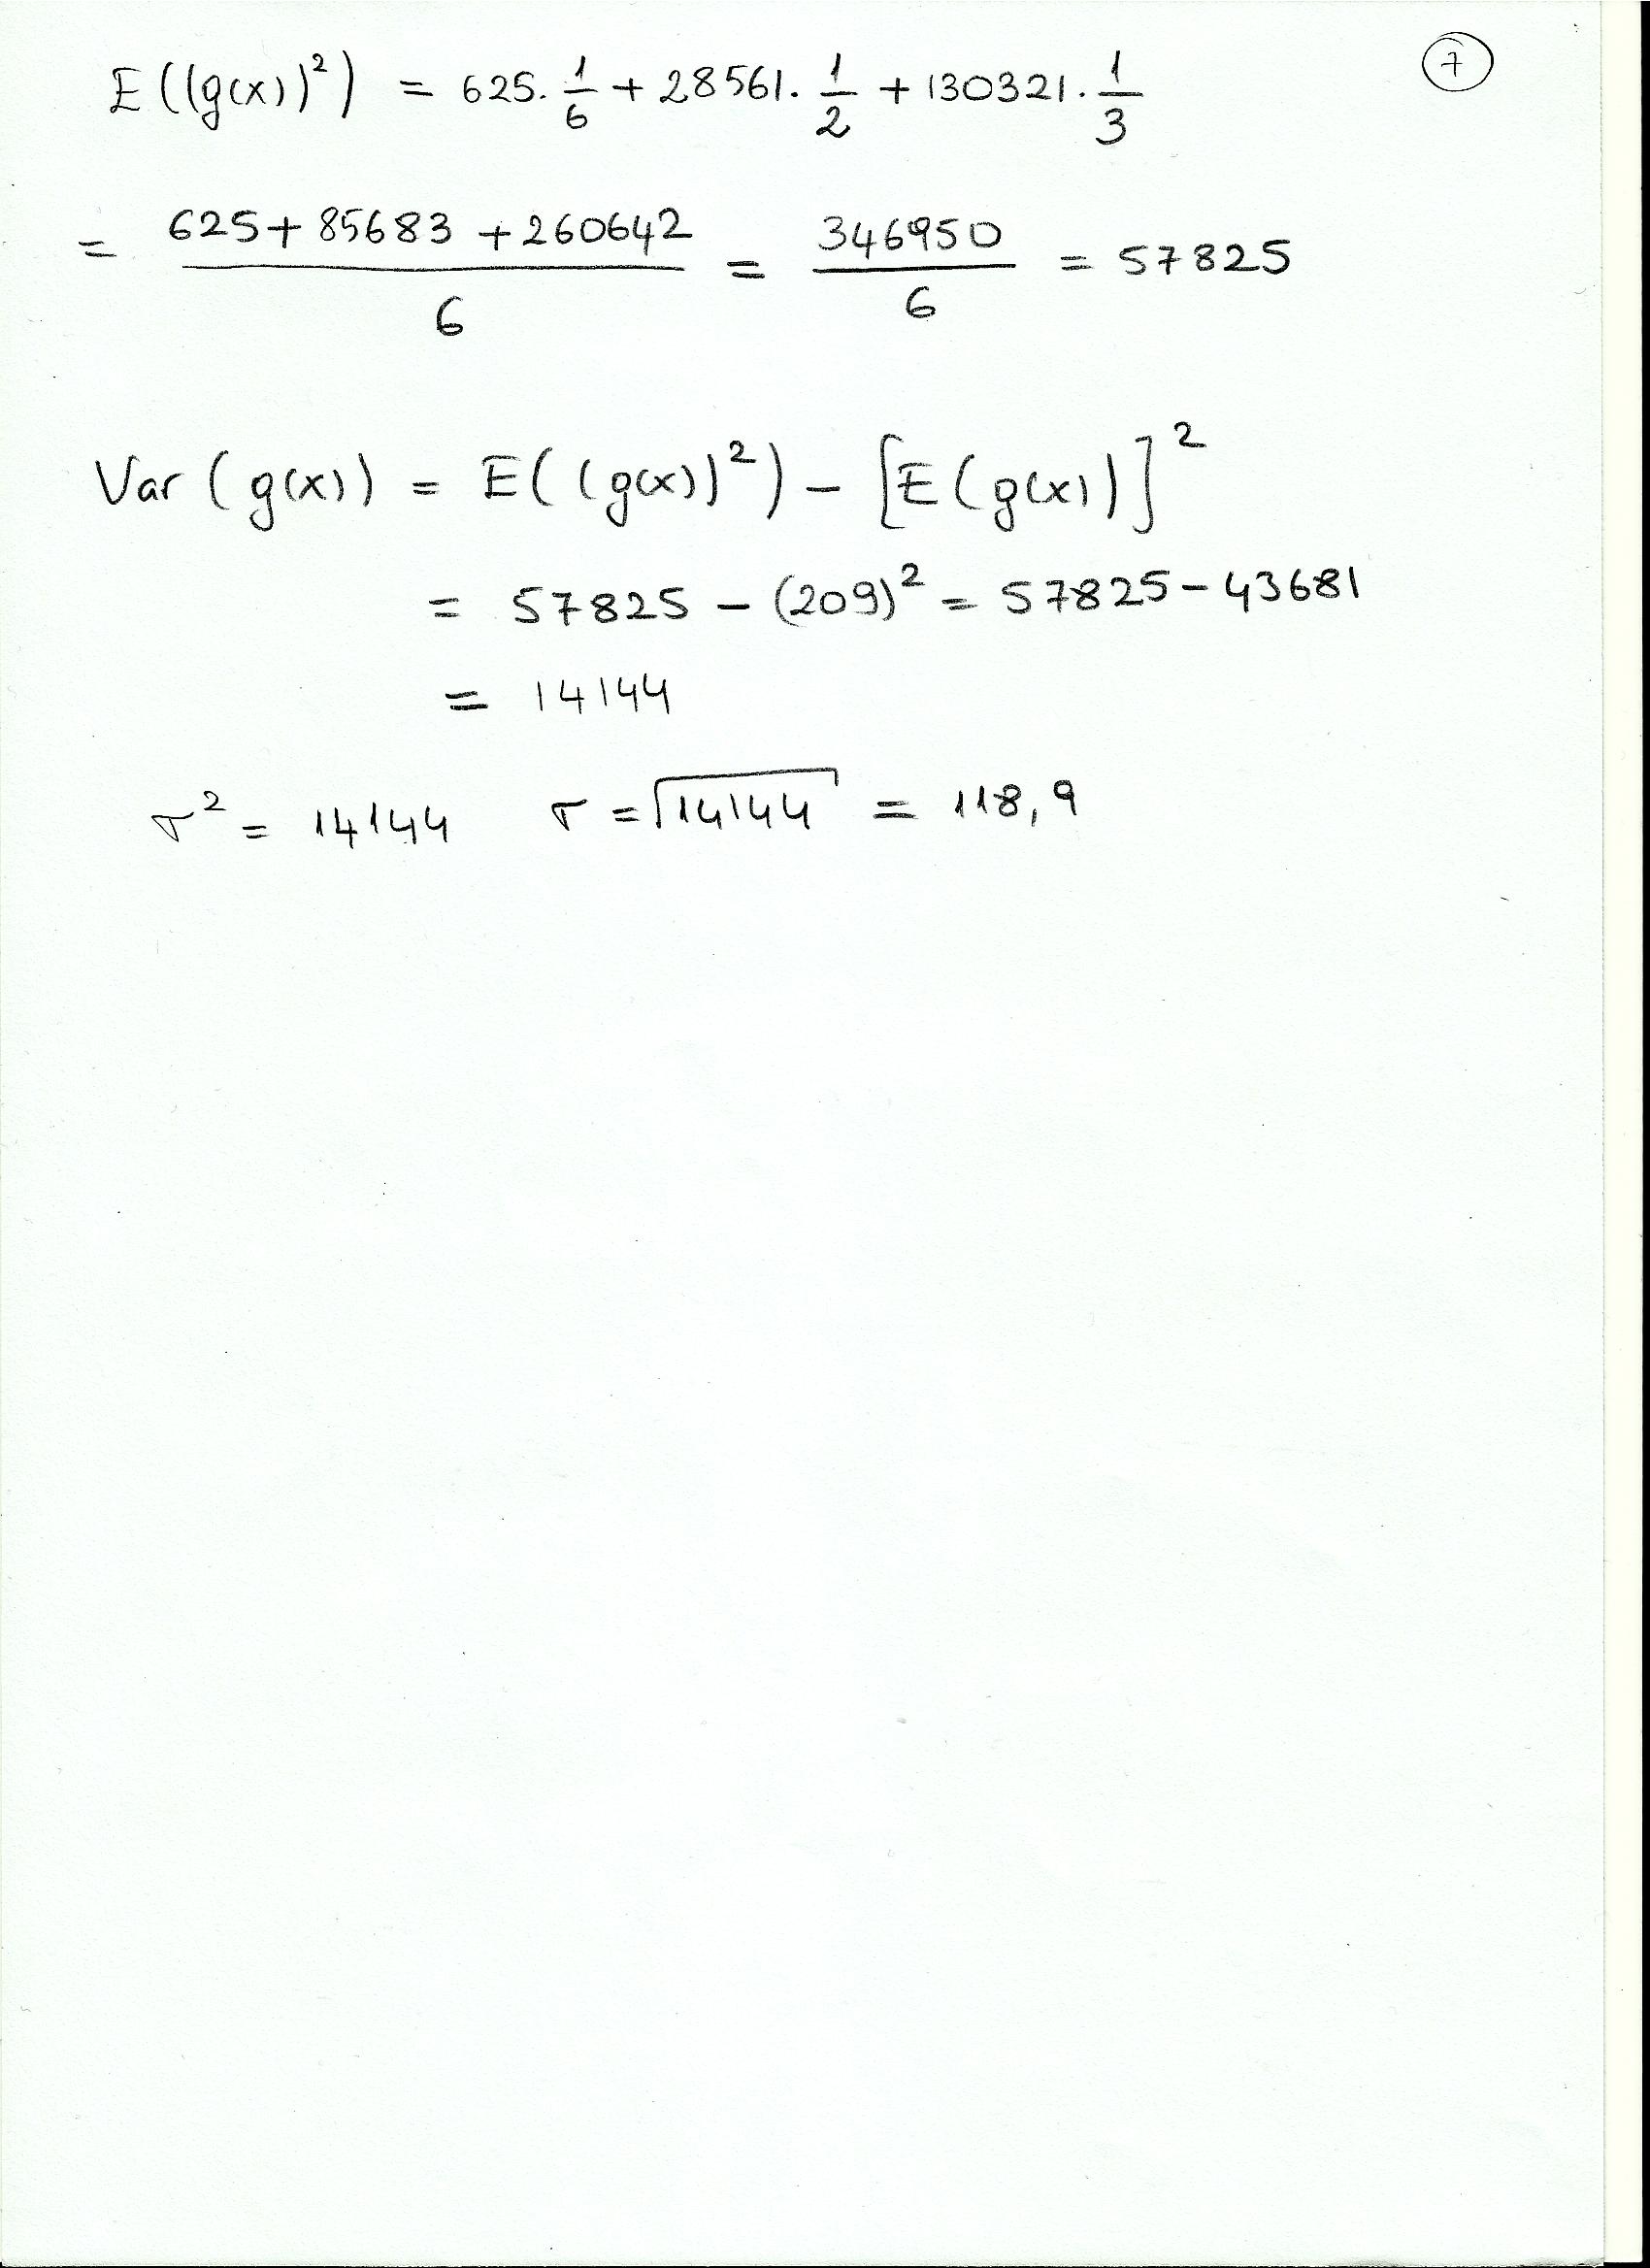 E((g(x))²) = 625 · 1/6 + 28561 · 1/2 + 130321 · 1/3
7
= (625 + 85683 + 260642)/6 = 346950/6 = 57825
Var (g(x)) = E((g(x))²) − [E(g(x))]²
= 57825 − (209)² = 57825 − 43681
= 14144
σ² = 14144 σ = √14144 = 118,9